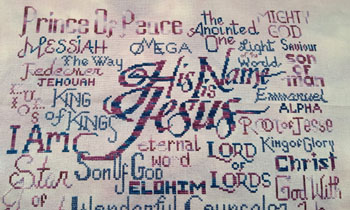 Prince Of Peace
the Anointed One
MIGHTY GOD
MESSIAH
OMEGA
Light of the World
Saviour
son of man
The Way
Redeemer
JEHOVAH
His Name is Jesus
Emmanuel
ALPHA
KING of KINGS
Root of Jesse
I AM
eternal word
LORD OF LORDS
King of Glory
Christ
Son Of GOD
ELOHIM
God With
Wonderful Counselor